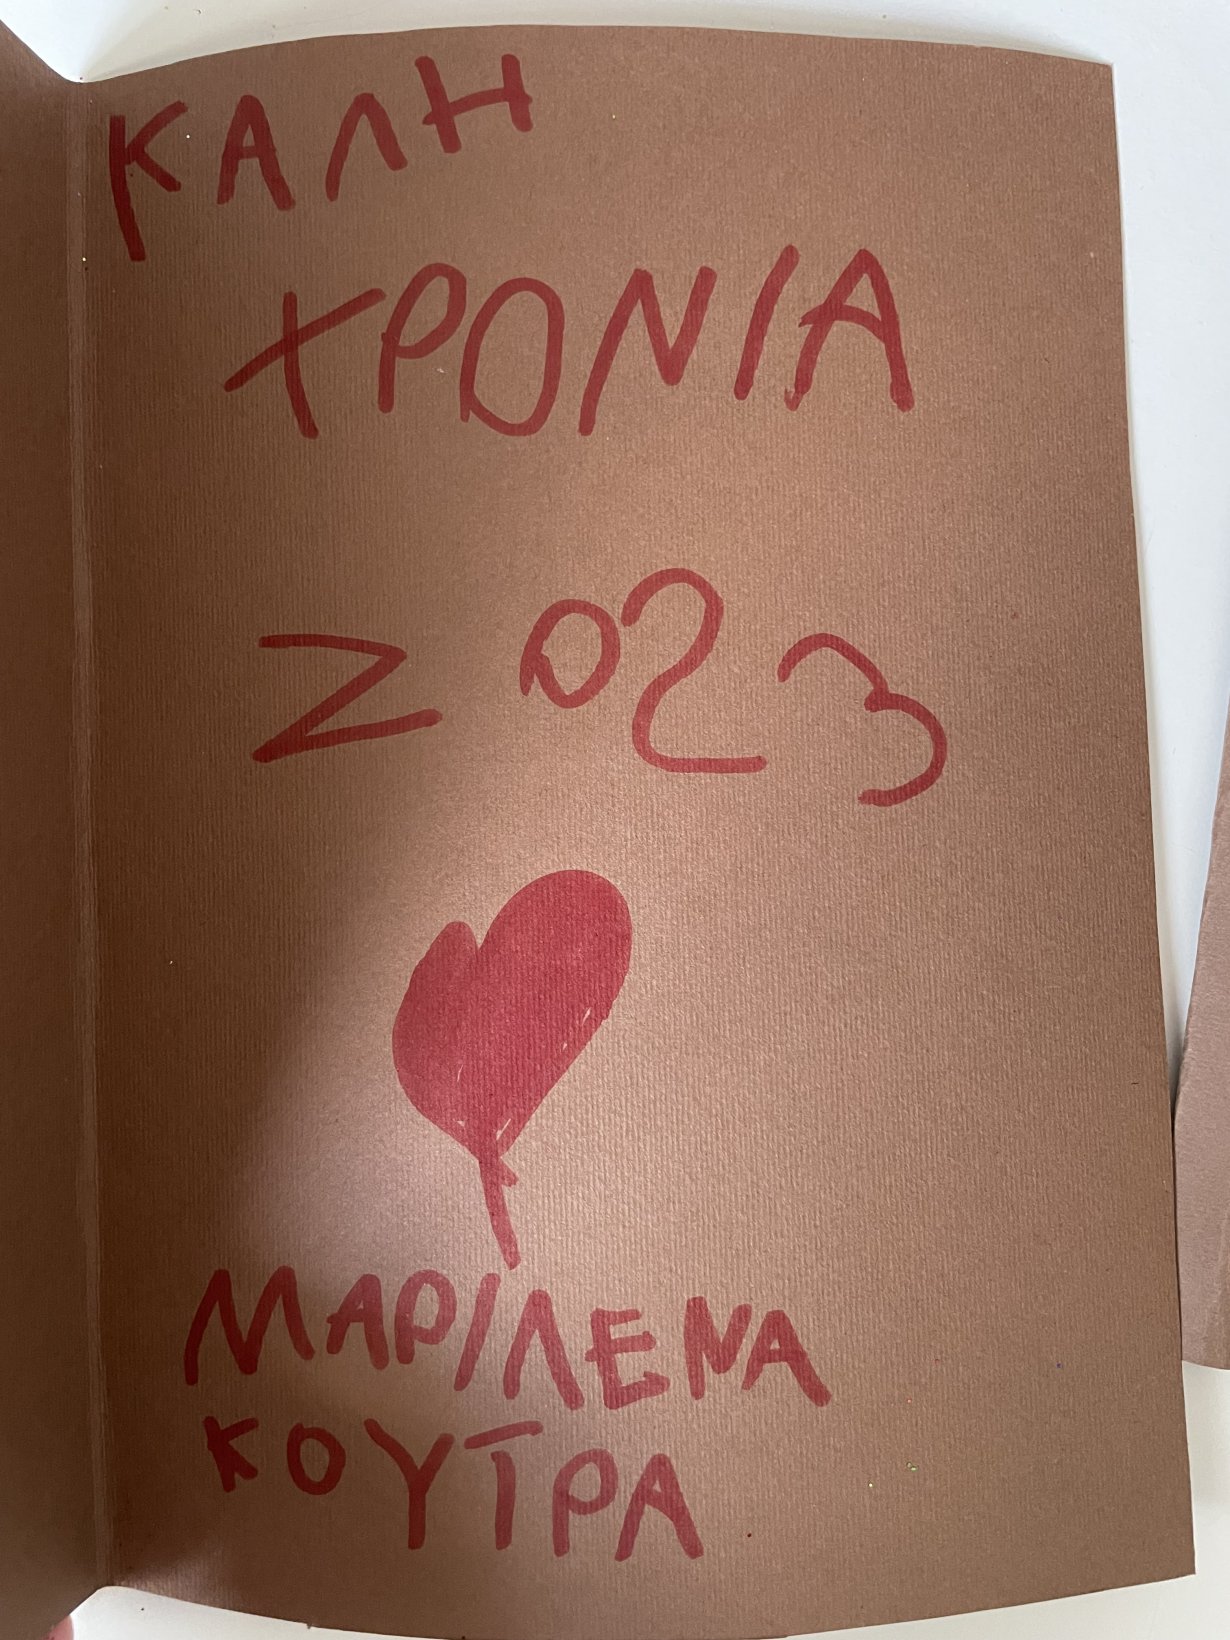 ΚΑΛΗ
ΧΡΟΝΙΑ
2023
ΜΑΡΙΛΕΝΑ
ΚΟΥΤΡΑ